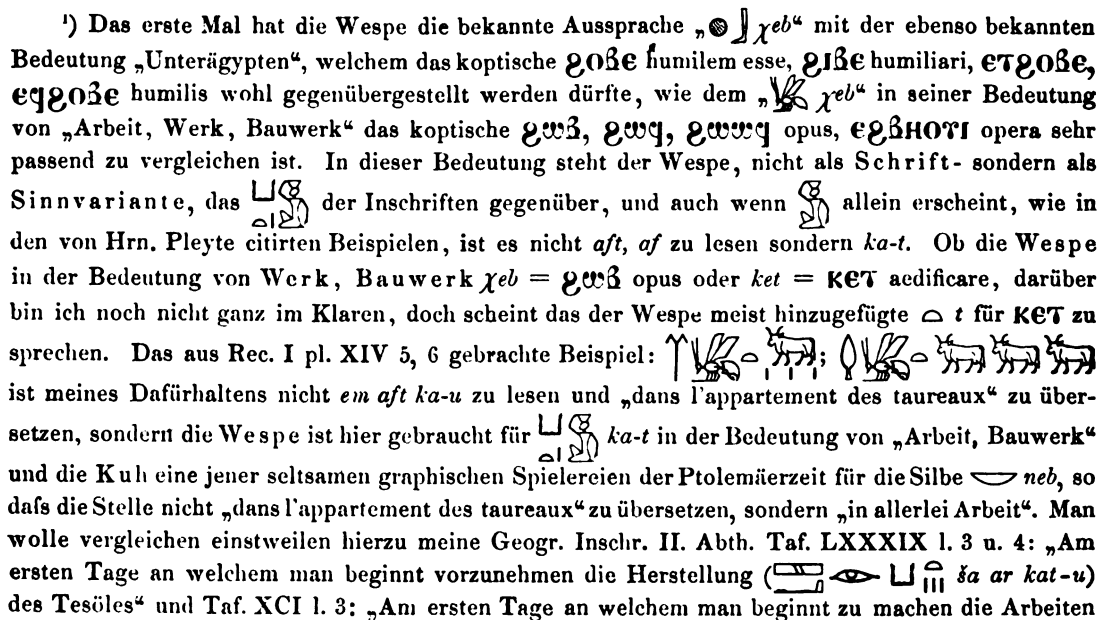 ¹) Das erste Mal hat die Wespe die bekannte Aussprache „𓐍𓃀 χeb“ mit der ebenso bekannten
Bedeutung „Unterägypten“, welchem das koptische ϩⲟⲃⲉ humilem esse, ϩⲓⲃⲉ humiliari, ⲉⲧϩⲟⲃⲉ,
ⲉϥϩⲟⲃⲉ humilis wohl gegenübergestellt werden dürfte, wie dem „𓆤 χeb“ in seiner Bedeutung
von „Arbeit, Werk, Bauwerk“ das koptische ϩⲱⲃ, ϩⲱϥ, ϩⲱⲱϥ opus, ⲉϩⲃⲏⲟⲩⲓ opera sehr
passend zu vergleichen ist. In dieser Bedeutung steht der Wespe, nicht als Schrift- sondern als
Sinnvariante, das der Inschriften gegenüber, und auch wenn allein erscheint, wie in
den von Hrn. Pleyte citirten Beispielen, ist es nicht aft, af zu lesen sondern ka-t. Ob die Wespe
in der Bedeutung von Werk, Bauwerk χeb = ϩⲱⲃ opus oder ket = ⲕⲉⲧ aedificare, darüber
bin ich noch nicht ganz im Klaren, doch scheint das der Wespe meist hinzugefügte 𓏏 t für ⲕⲉⲧ zu
sprechen. Das aus Rec. I pl. XIV 5, 6 gebrachte Beispiel:
ist meines Dafürhaltens nicht em aft ka-u zu lesen und „dans l'appartement des taureaux“ zu über-
setzen, sondern die Wespe ist hier gebraucht für ka-t in der Bedeutung von „Arbeit, Bauwerk“
und die Kuh eine jener seltsamen graphischen Spielereien der Ptolemäerzeit für die Silbe 𓎟 neb, so
dafs die Stelle nicht „dans l'appartement des taureaux“ zu übersetzen, sondern „in allerlei Arbeit“. Man
wolle vergleichen einstweilen hierzu meine Geogr. Inschr. II. Abth. Taf. LXXXIX l. 3 u. 4: „Am
ersten Tage an welchem man beginnt vorzunehmen die Herstellung (𓈙𓂝𓁹𓂓𓏏𓏥 ša ar kat-u)
des Tesöles“ und Taf. XCI l. 3: „Am ersten Tage an welchem man beginnt zu machen die Arbeiten